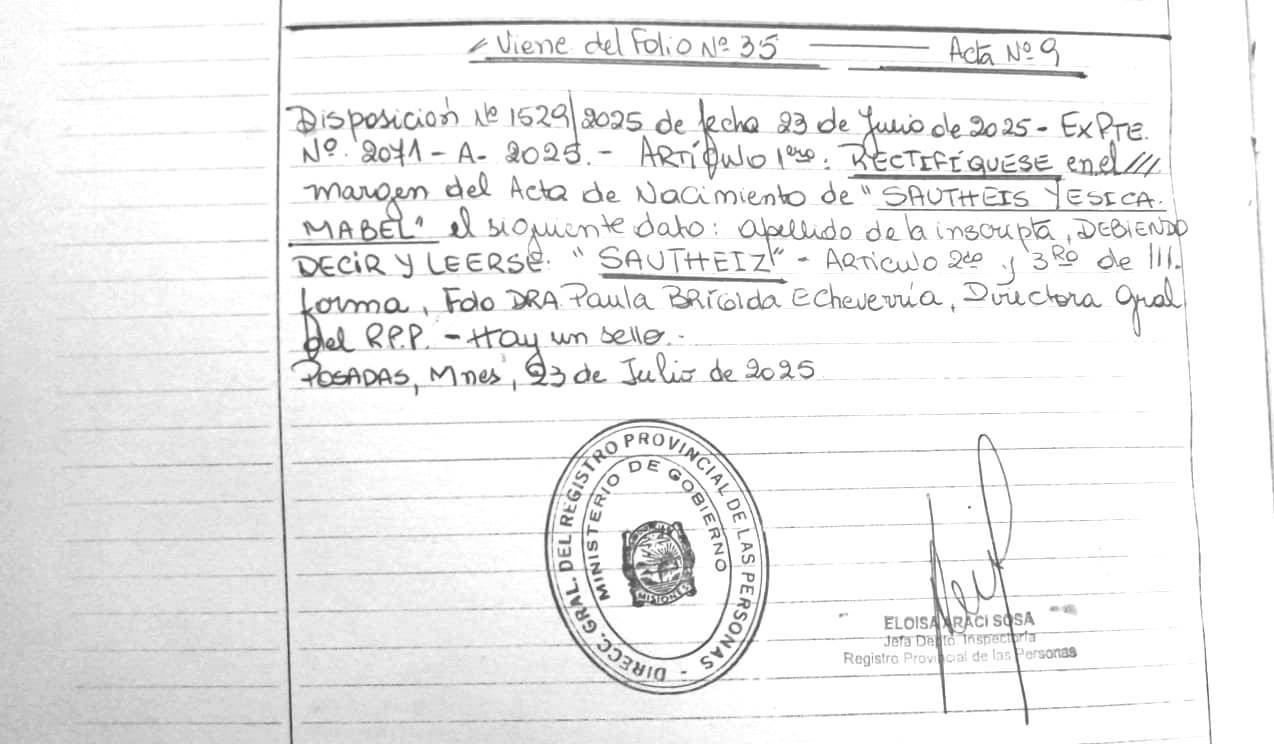 Viene del Folio Nº 35 Acta Nº 9
Disposición Nº 1529/2025 de fecha 23 de Junio de 2025 - ExPTE.
Nº. 2071 - A - 2025. - ARTÍCULO 1ero: RECTIFÍQUESE en el ///
margen del Acta de Nacimiento de "SAUTHEIS YESICA.
MABEL" el siguiente dato: apellido de la inscripta, DEBIENDO
DECIR Y LEERSE: "SAUTHEIZ" - ARTICULO 2do y 3Ro de ///.
forma, Fdo DRA. Paula BRIGIDA Echeverría, Directora Gral
del R.P.P. - Hay un sello.-
POSADAS, Mnes, 23 de Julio de 2025
DIRECC. GRAL. DEL REGISTRO PROVINCIAL DE LAS PERSONAS -
MINISTERIO DE GOBIERNO
MISIONES
ELOISA ARACI SOSA
Jefa Depto Inspectoria
Registro Provincial de las Personas